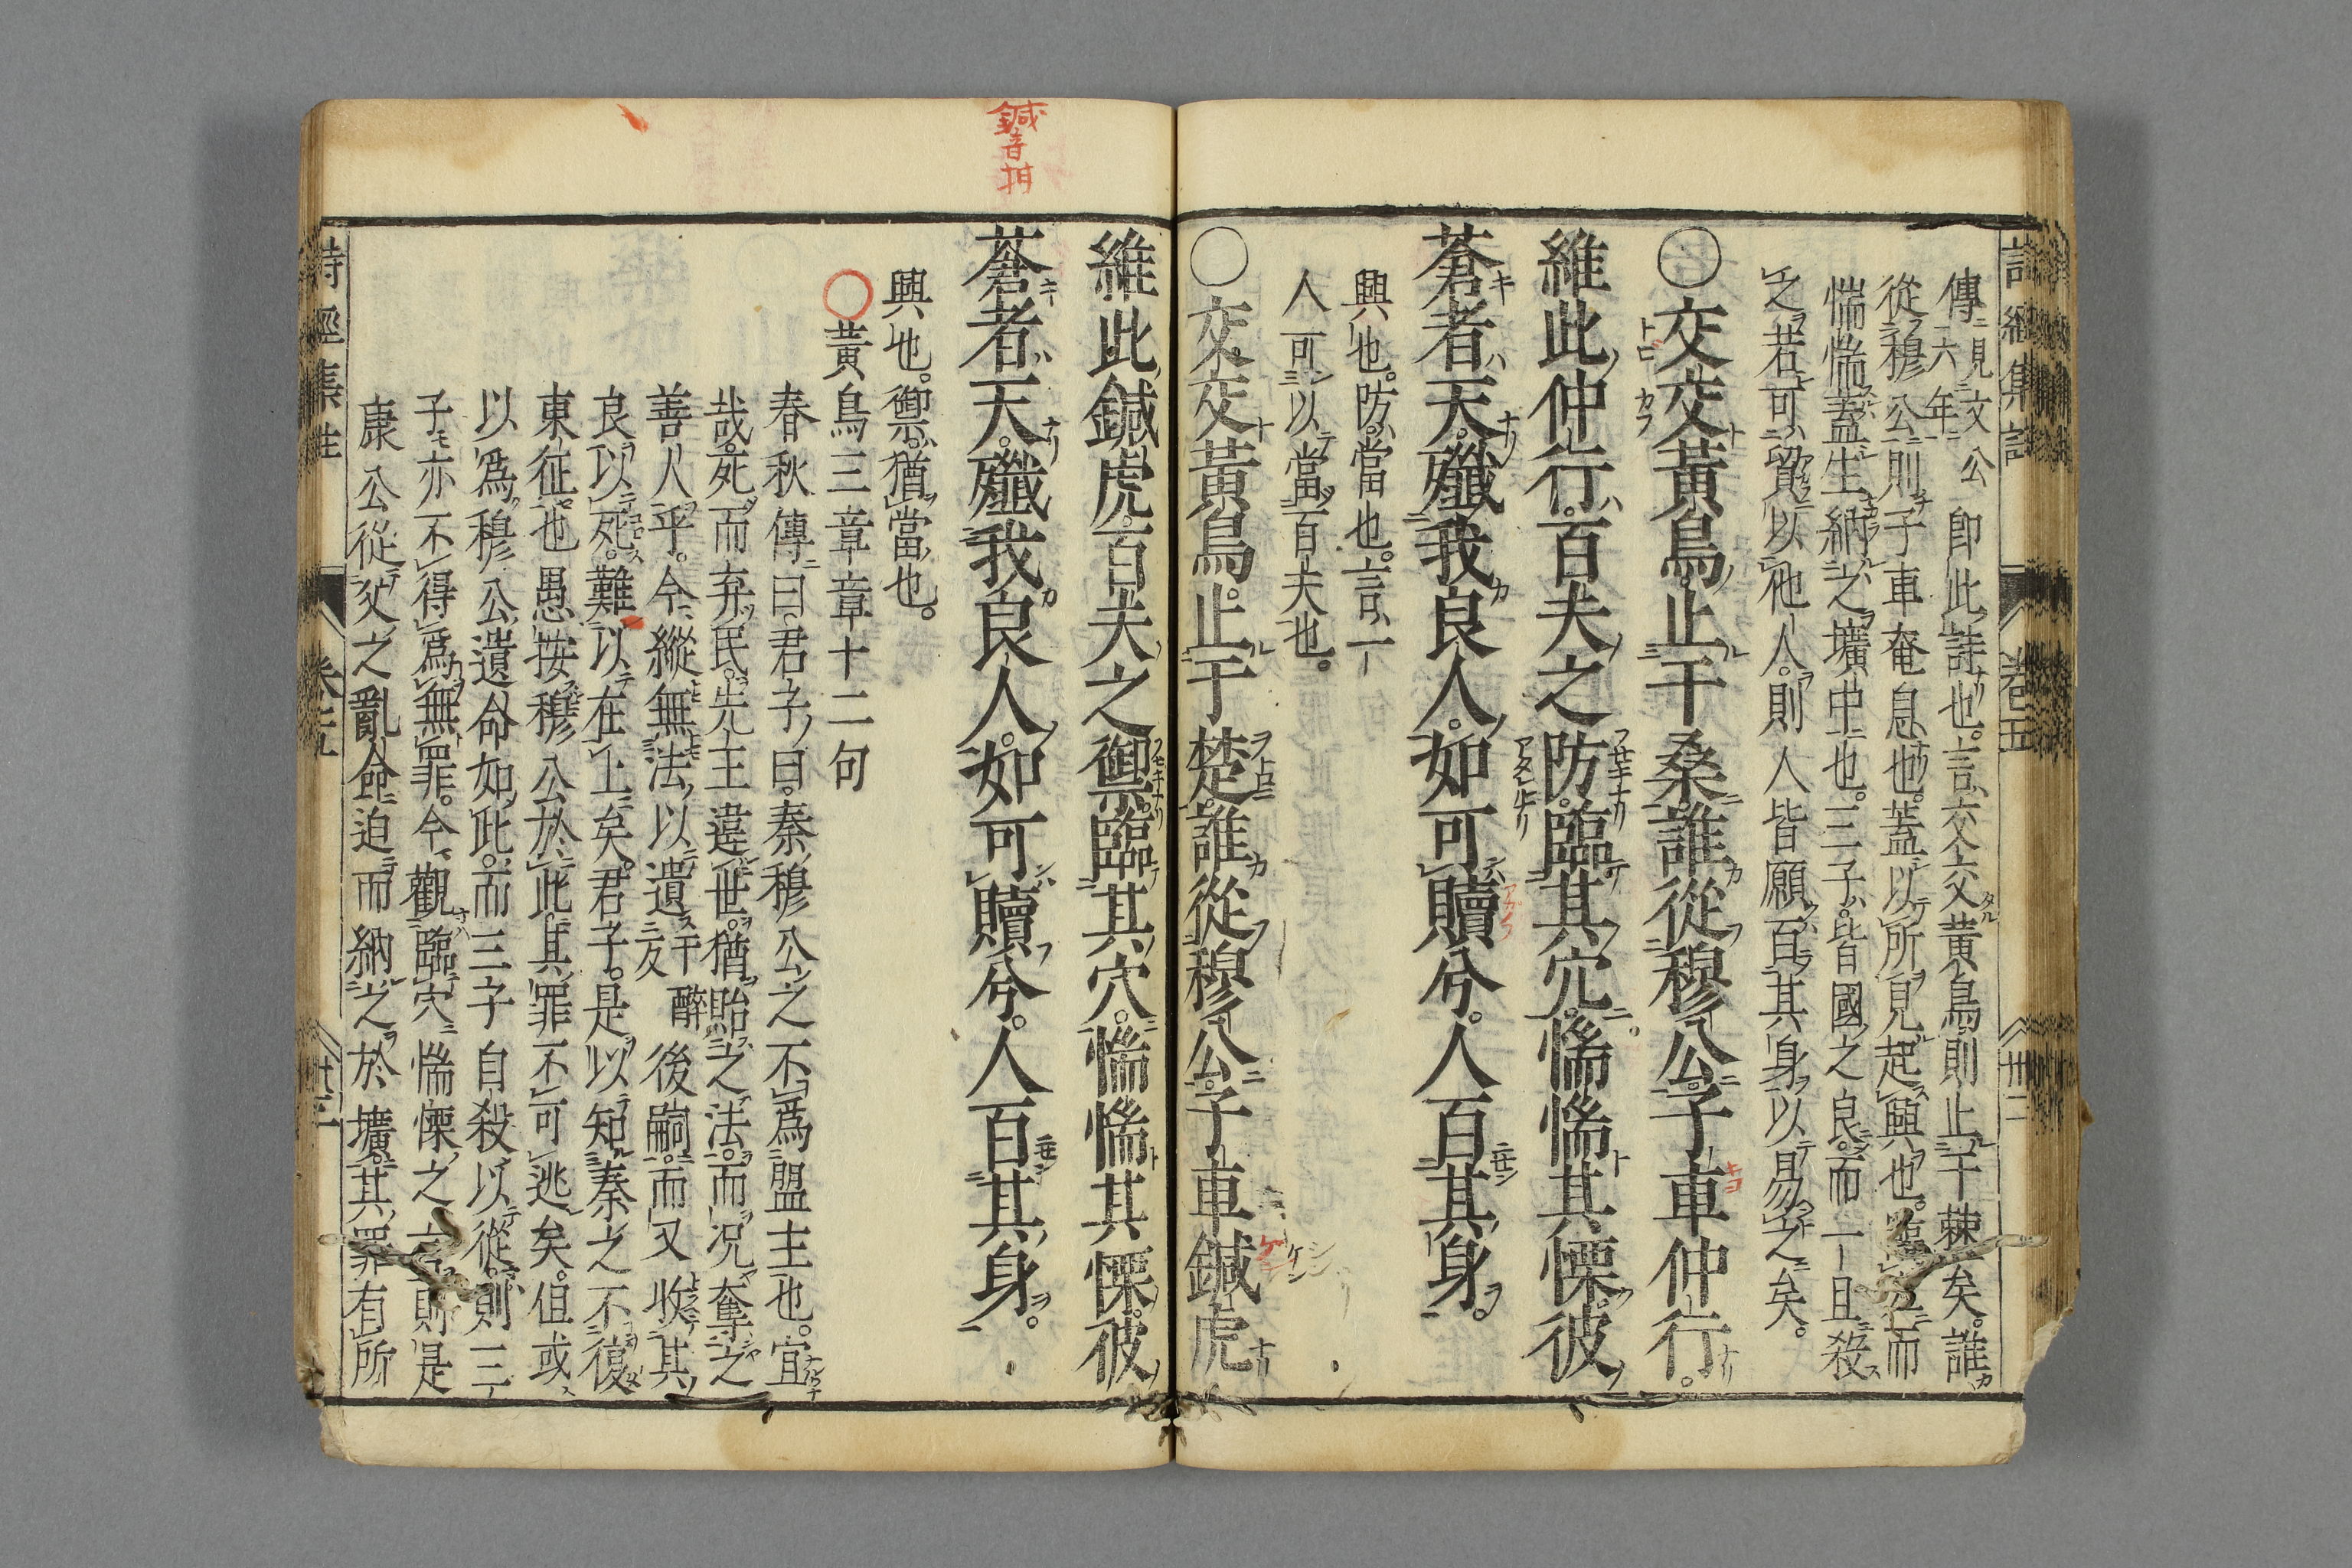 傳見文公六年卽此詩也。言交交黃鳥則止于棘矣。誰
從穆公則子車奄息也。蓋以所見起興也。臨穴而
惴惴蓋生納之壙中也。三子皆國之良。而一旦殺
之若可貿以他人。則人皆願百其身以易之矣。
○交交黃鳥。止于桑。誰從穆公。子車仲行。
維此仲行。百夫之防。臨其穴。惴惴其慄。彼
蒼者天。殲我良人。如可贖兮。人百其身。
興也。防。當也。言一
人可以當百夫也。
○交交黃鳥。止于楚。誰從穆公。子車鍼虎
維此鍼虎。百夫之禦。臨其穴。惴惴其慄。彼
蒼者天。殲我良人。如可贖兮。人百其身。
興也。禦。猶當也。
○黃鳥三章章十二句
春秋傳曰。君子曰。秦穆公之不爲盟主也。宜
哉。死而弃民。先王違世。猶貽之法。而况奪之
善人乎。今縱無法以遺于醉三反後嗣。而又收其
良以死。難以在上矣。君子是以知秦之不復
東征也愚按穆公於此其罪不可逃矣。但或
以爲穆公遺命如此。而三子自殺以從。則三
子亦不得爲無罪。今觀臨穴惴慄之言則是
康公從父之亂命迫而納之於壙。其罪有所
鍼音拑
詩經集註
卷五
卅二
詩經集註
卷五
卅三